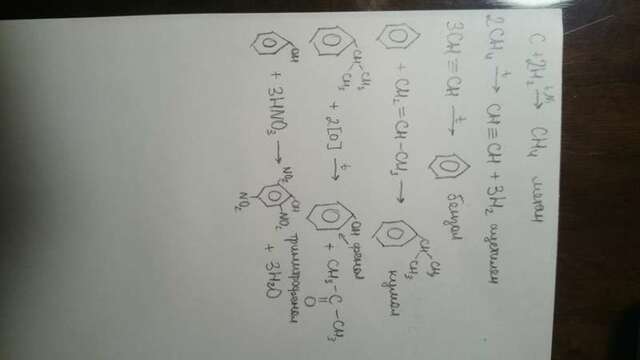 C + 2H₂ →(t, Ni) CH₄ метан
2CH₄ →(t) CH≡CH + 3H₂ ацетилен
3CH≡CH →(t) бензол
+ CH₂=CH-CH₃ → CH CH₃ CH₃ кумол
CH CH₃ CH₃ + 2[O] →(t) OH фенол + CH₃-C-CH₃ O
OH + 3HNO₃ → NO₂ OH NO₂ NO₂ тринитрофенол + 3H₂O